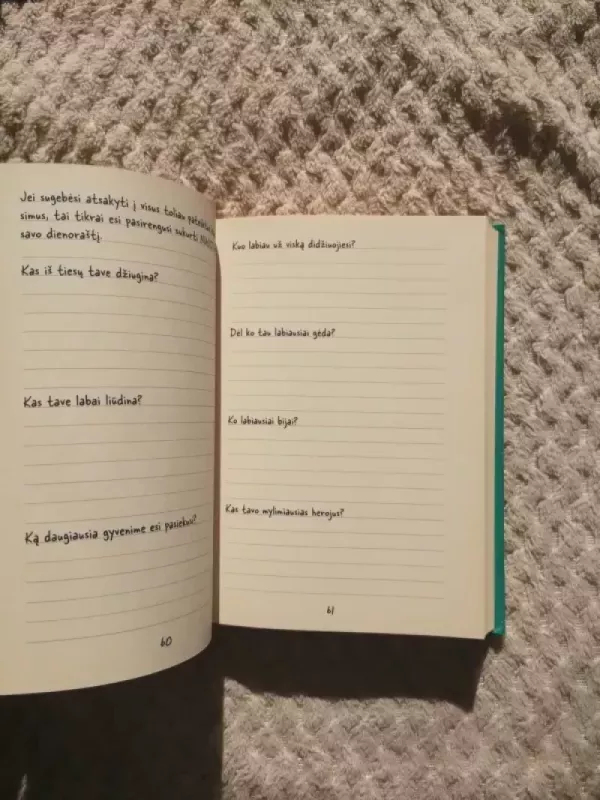 Jei sugebėsi atsakyti į visus toliau
simus, tai tikrai esi pasirengusi sukurti
savo dienoraštį.
Kas iš tiesų tave džiugina?
Kas tave labai liūdina?
Ką daugiausia gyvenime esi pasiekusi?
60
Kuo labiau už viską didžiuojiesi?
Dėl ko tau labiausiai gėda?
Ko labiausiai bijai?
Kas tavo mylimiausias herojus?
61